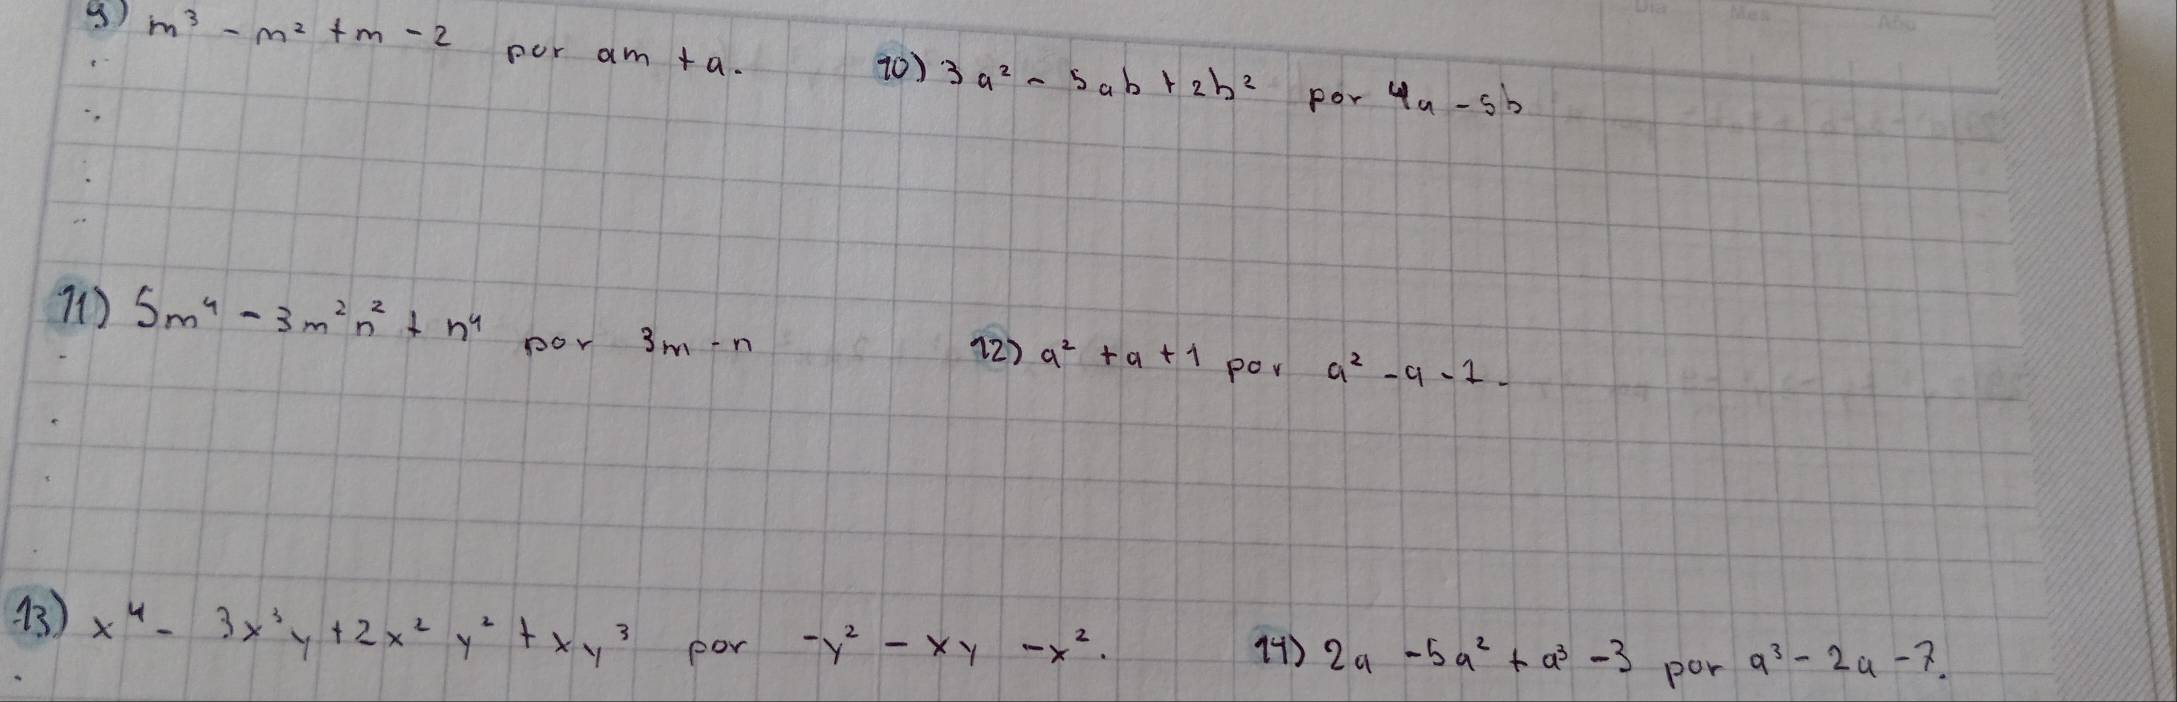 Dia Mes Año
9) m³ - m² + m - 2 por am + a. 10) 3a² - 5ab + 2b² por 4a - 5b
11) 5m⁴ - 3m²n² + n⁴ por 3m - n 12) a² + a + 1 por a² - a - 1.
13) x⁴ - 3x³y + 2x²y² + xy³ por -y² - xy - x². 14) 2a - 5a² + a³ - 3 por a³ - 2a - 7.